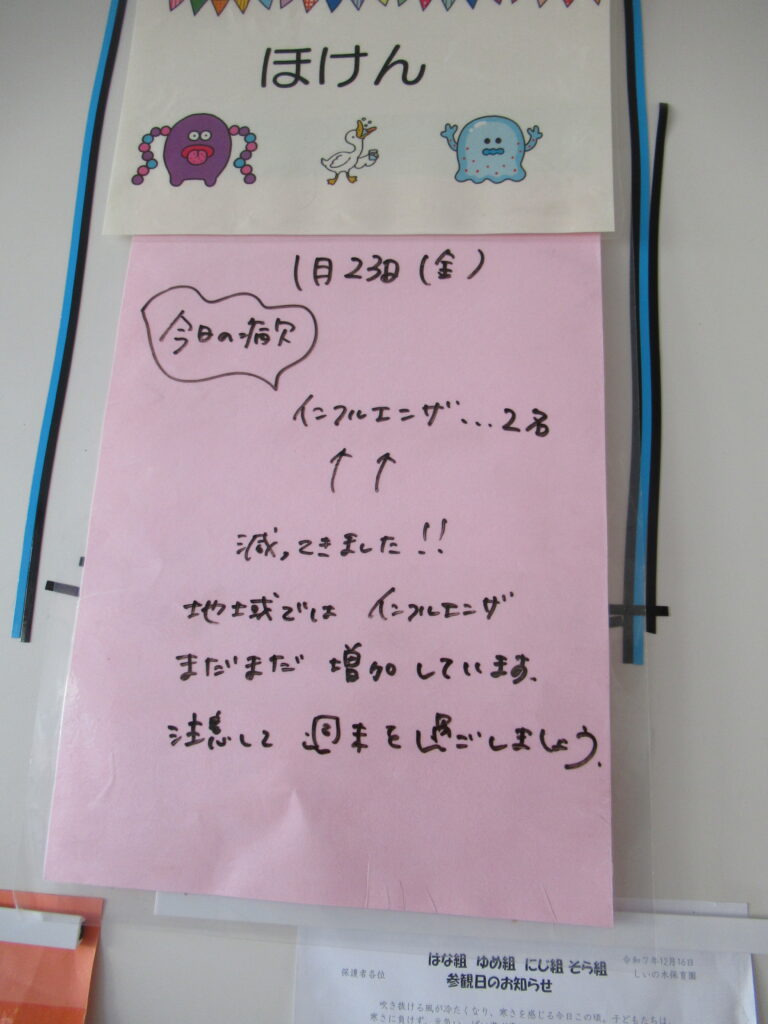 ほけん
1月23日(金)
今日の病欠
インフルエンザ...2名
↑↑
減ってきました!!
地域では インフルエンザ
まだまだ 増加しています.
注意して 週末を過ごしましょう.
はな組 ゆめ組 にじ組 そら組
令和7年12月16日
保護者各位
参観日のお知らせ
しいの木保育園
吹き抜ける風が冷たくなり、寒さを感じる今日この頃。子どもたちは、
寒さに負けず、元気いっぱい